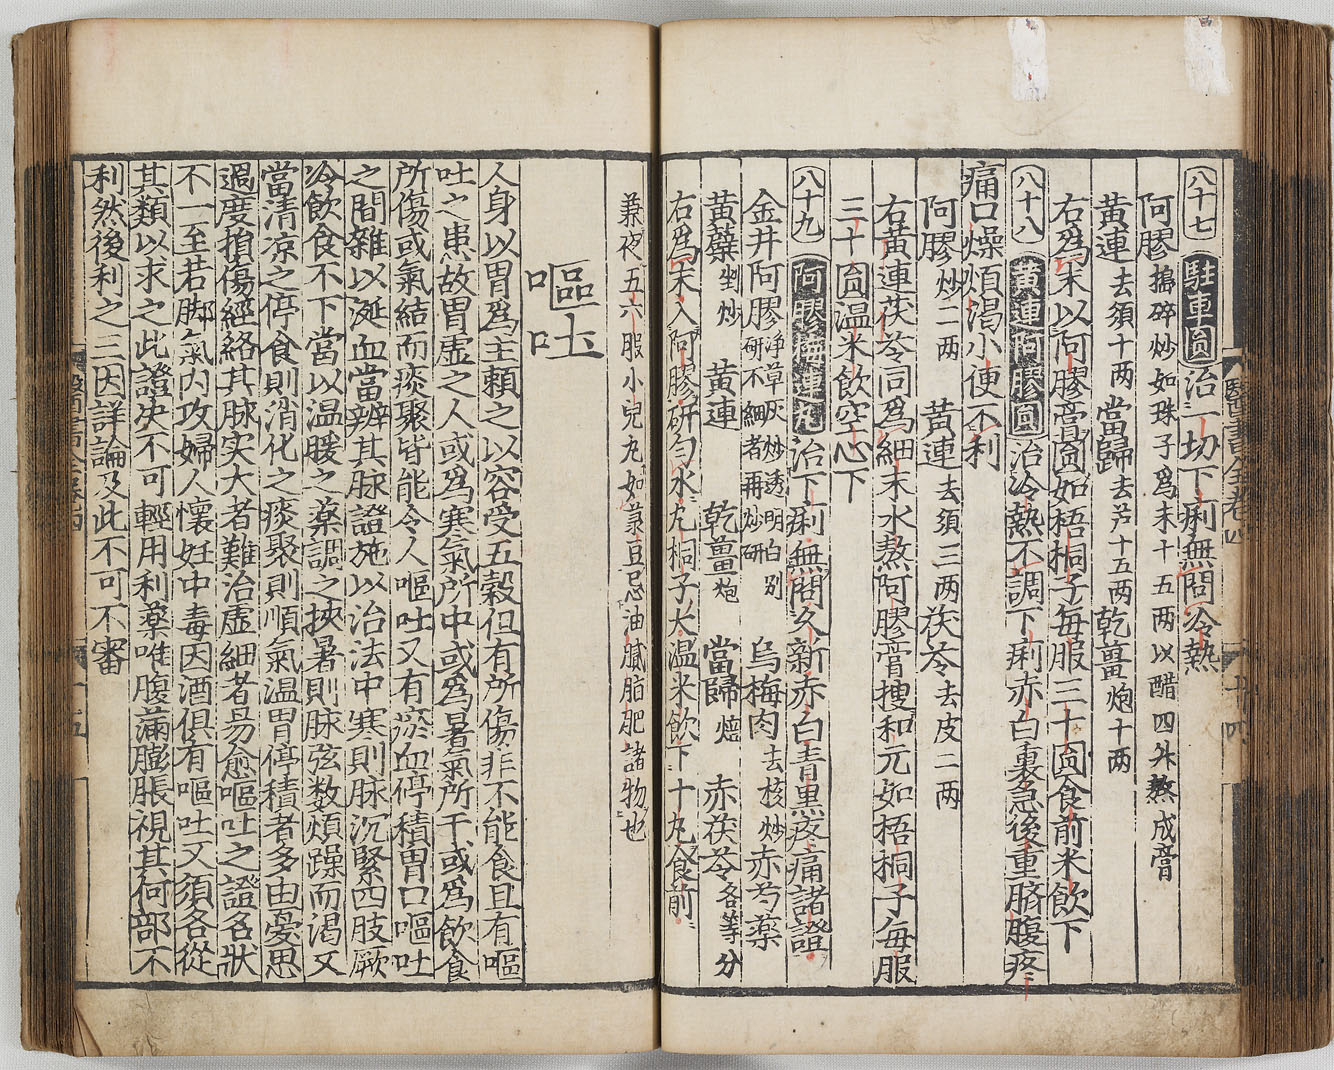 八十七 駐車圓 治一切下痢無問冷熱
阿膠 搗碎炒如珠子為末十五两以醋四升熬成膏
黃連 去須十两 當歸 去芦十五两 乾薑 炮十两
右為末以阿膠膏圓如梧桐子每服三十圓食前米飲下
八十八 黃連阿膠圓 治冷熱不調下痢赤白裏急後重臍腹疼
痛口燥煩渴小便不利
阿膠 炒二两 黃連 去須三两 茯苓 去皮二两
右黃連茯苓同為細末水熬阿膠膏搜和元如梧桐子每服
三十圓温米飲空心下
八十九 阿膠梅連丸 治下痢無問久新赤白青黒疼痛諸證
金井阿膠 净草灰炒透明白别研不細者再炒研 烏梅肉 去核炒 赤芍藥
黃蘗 剉炒 黃連 乾薑 炮 當歸 焙 赤茯苓 各等分
右為末入阿膠研匀水丸桐子大温米飲下十丸食前
兼夜五六服小兒丸如菉豆忌油膩脂肥諸物也
嘔吐
人身以胃為主賴之以容受五穀但有所傷非不能食且有嘔
吐之患故胃虛之人或為寒氣所中或為暑氣所干或為飲食
所傷或氣結而痰聚皆能令人嘔吐又有瘀血停積胃口嘔吐
之間雜以涎血當辨其脉證施以治法中寒則脉沉緊四肢厥
冷飲食不下當以温暖之藥調之挾暑則脉弦数煩躁而渴又
當清凉之停食則消化之痰聚則順氣温胃停積者多由憂思
過度損傷經絡其脉实大者難治虛細者易愈嘔吐之證名狀
不一至若脚氣内攻婦人懷妊中毒因酒俱有嘔吐又須各從
其類以求之此證决不可輕用利藥唯腹滿膨脹視其何部不
利然後利之三因詳論及此不可不審
醫書全卷四
十四